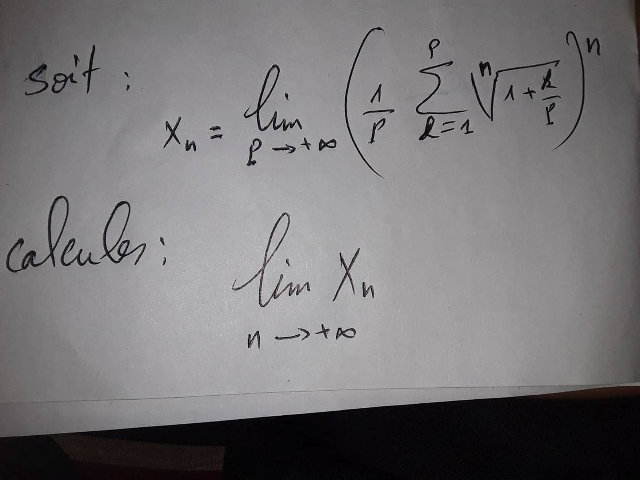 soit :
X_n = lim_{p → +∞} ( 1/p ∑_{k=1}^{p} ⁿ√(1 + k/p) )^n
calculer :
lim_{n → +∞} X_n